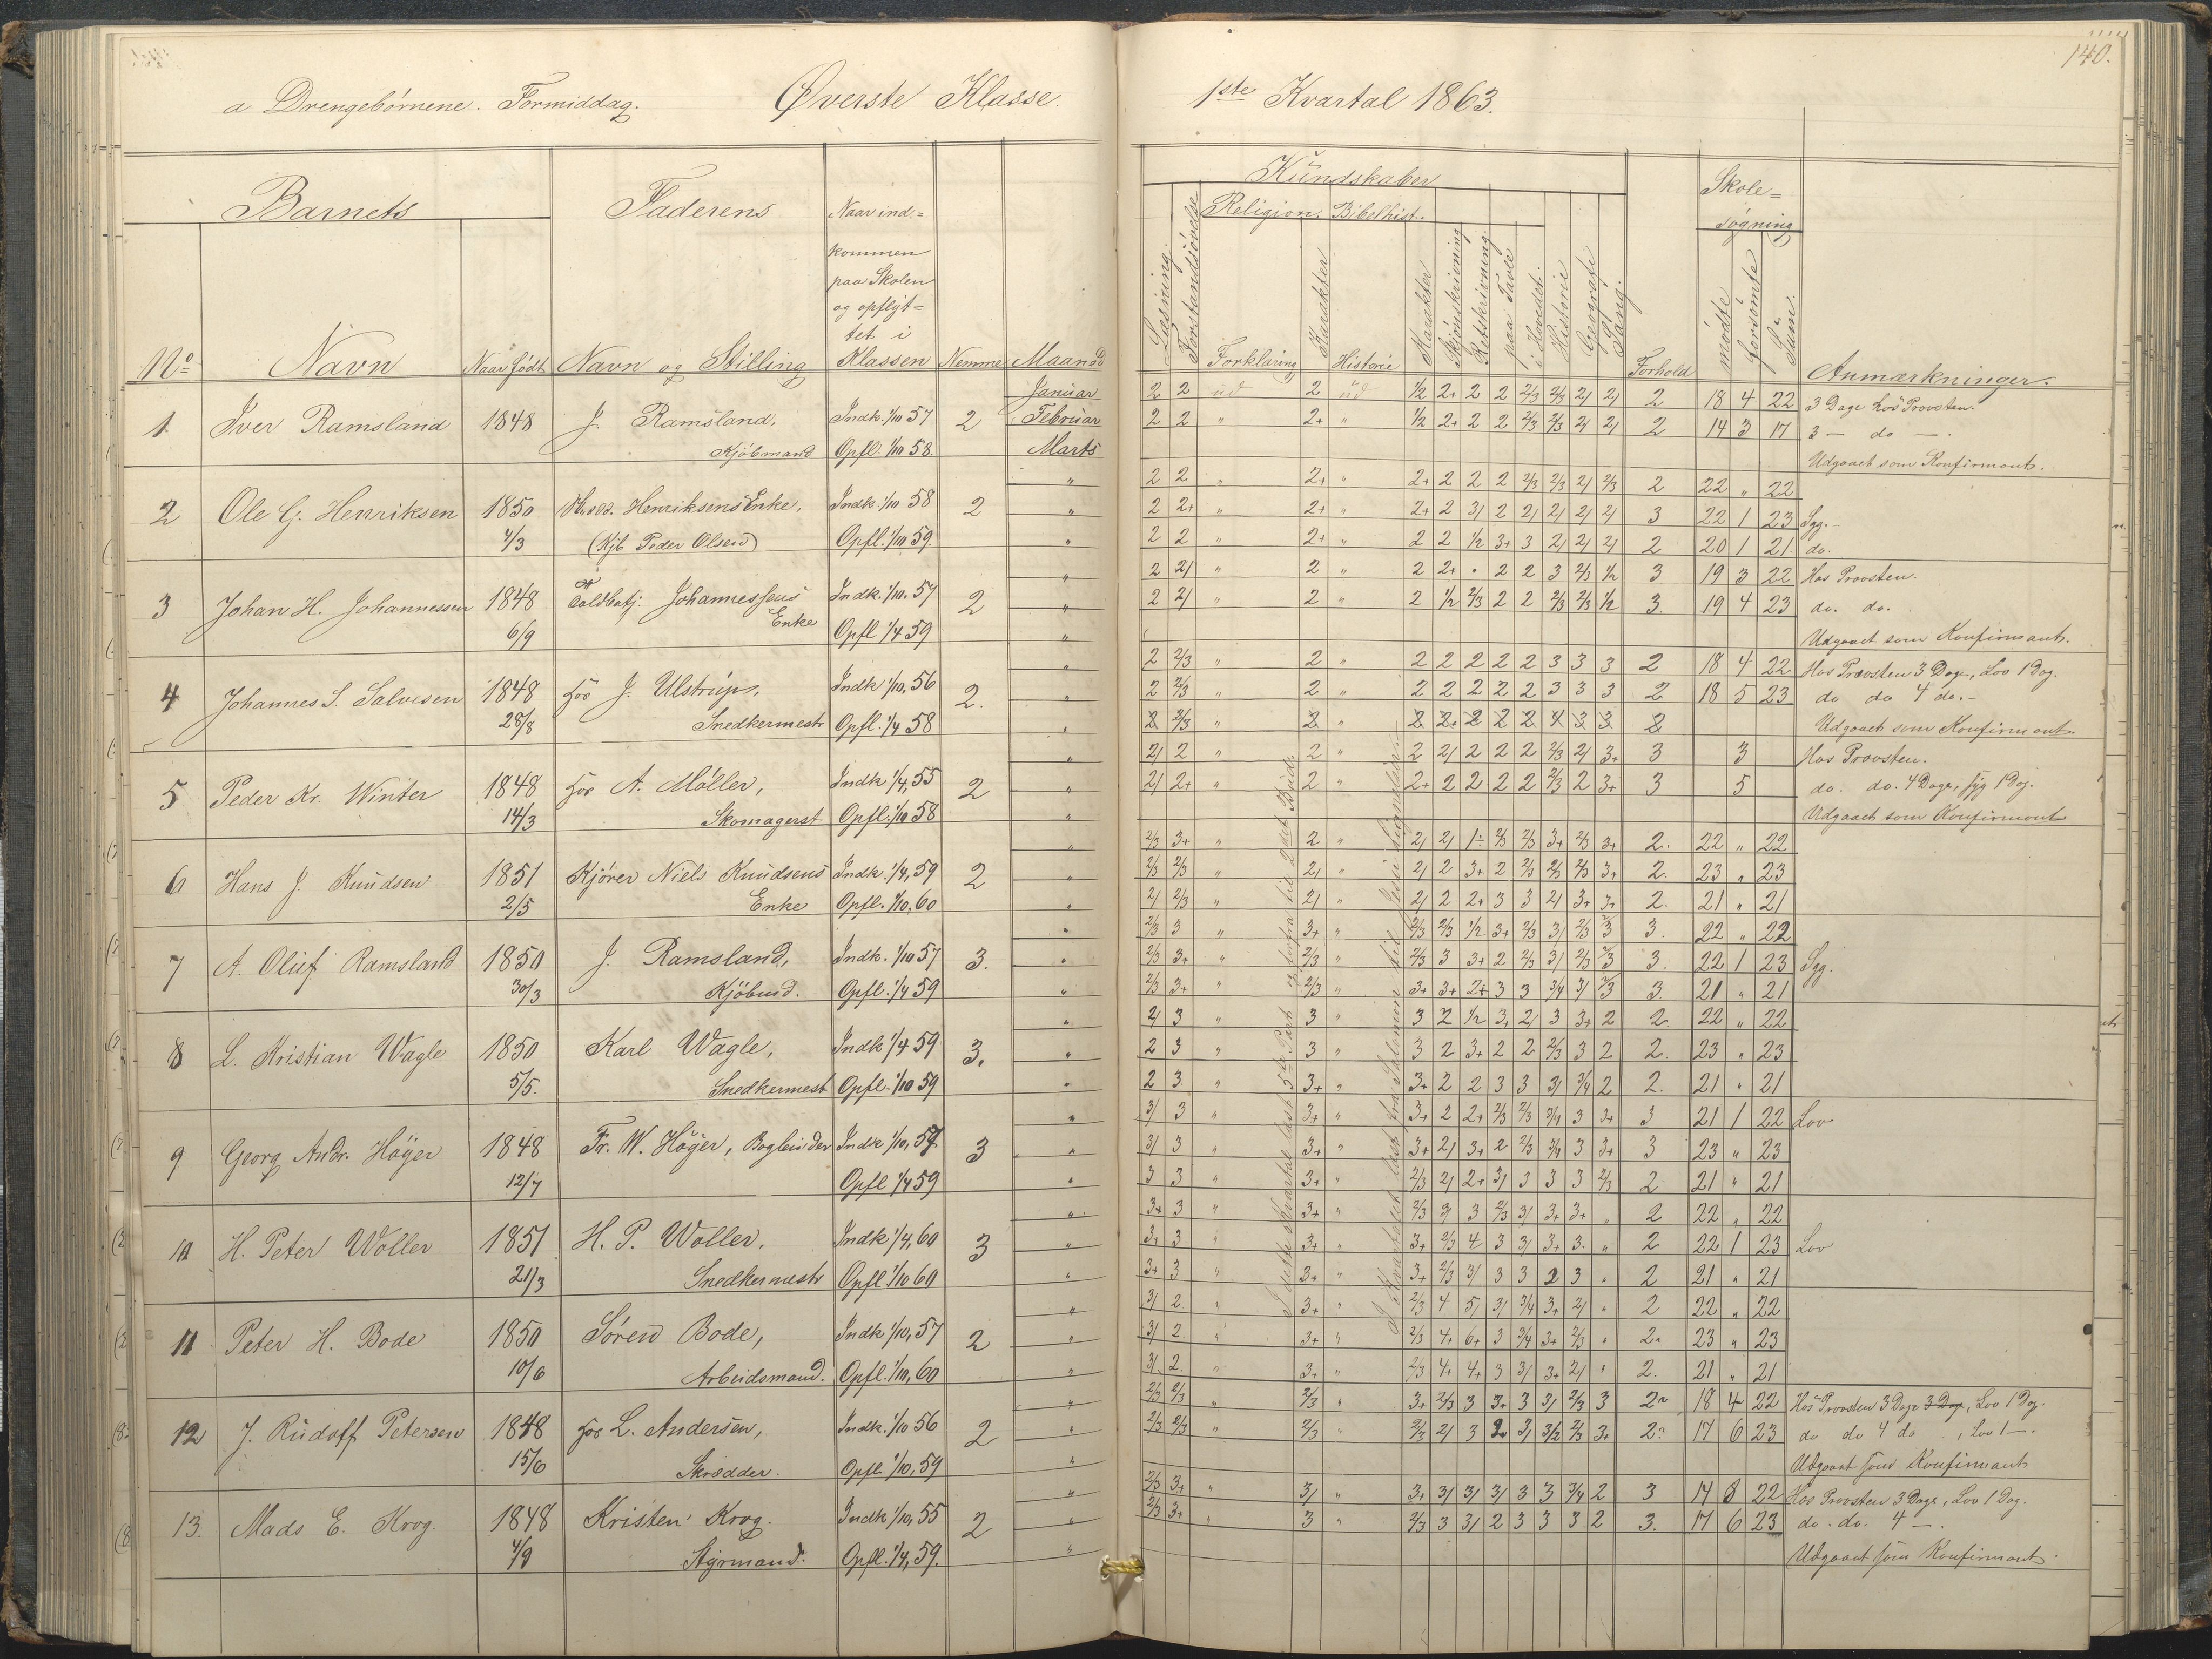 140.
a Drengebørnene. Formiddag. Øverste Klasse. 1ste Kvartal 1863.
Barnets Faderens Naar ind=
kommen
paa Skolen
og opflyt=
tet i
No Navn Naar født Navn og Stilling Klassen Nemme Maaned
Kundskaber Skole=
søgning
Religion. Bibelhist.
Læsning. Forstandsøvelse Forklaring Karakter Historie Karakter Skjönskrivning Retskrivning. paa Tavle i Hovedet. Historie Geografi Sang. Forhold mødte forsømte Sum. Anmærkninger.
1. Iver Ramsland 1848 J. Ramsland, Kjöbmand Indk. 1/10 57 Opfl. 1/10 58. 2 Januar Februar Marts
2 2 ud 2 ud 1/2 2+ 2 2 2/3 2/3 2/ 2/ 2 18 4 22 3 Dage hos Provsten.
2 2 " 2+ " 1/2 2+ 2 2 2/3 2/3 2/ 2/ 2 14 3 17 3 — do —.
Udgaaet som Konfirmant.
2 Ole G. Henriksen 1850 4/3 Henriksens Enke, (Kjb Peder Olsen) Indk. 1/10 58 Opfl. 1/10 59. 2
2 2 " 2+ " 2+ 2 2 2 2/3 2/3 2/ 2/3 2 22 " 22
2 2+ " 2+ " 2+ 2 3/ 2 2/ 2/ 2/ 2/ 3 22 1 23 Syg.
2 2 " 2+ " 2 2 1/2 3+ 3 2/ 2/ 2/ 2 20 1 21. do.
3 Johan H. Johannessen 1848 6/9 Toldbetj. Johannessens Enke Indk. 1/10. 57 Opfl 1/4 59 2
2 2/ " 2 " 2 2+ " 2 2 3 2/3 1/2 3 19 3 22 Hos Provsten.
2 2/ " 2 " 2 1/2 2/3 2 2 2/3 2/3 1/2 3. 19 4 23 do. do.
Udgaaet som Konfirmant.
4 Johannes S. Salvesen 1848 28/8 hos J. Ulstrup, Snedkermestr Indk 1/10, 56 Opfl. 1/4 58 2.
2 2/3 " 2 " 2 2 2 2 2 3 3 3 2 18 4 22 Hos Provsten 3 Dage, Lov 1 Dag.
2 2/3 " 2 " 2 2 2 2 2 3 3 3 2 18 5 23 do do 4 do.
Udgaaet som Konfirmant.
5 Peder Kr. Winter 1848 14/3 hos A. Möller, Skomagerst. Indk 1/4, 55 Opfl. 1/10 58 2
2/ 2 " 2 " 2 2/ 2 2 2 2/3 2/ 3+ 3 3 Hos Provsten.
2/ 2+ " 2 " 2+ 2 2 2 2 2/3 2 3+ 3 5 do. do. 4 Dage, syg 1 Dag.
Udgaaet som Konfirmant
6 Hans J. Knudsen 1851 2/5 Kjörer Niels Knudsens Enke Indk. 1/4, 59 Opfl. 1/10, 60 2
2/3 3+ " 2 " 2/ 2/ 2/3 2/3 3+ 2/3 3+ 2. 22 " 22
2/3 2/3 " 2/ " 2/ 2 3+ 2 2/3 2/3 2/3 3+ 2. 23 " 23
2/ 2/3 " 2/ " 2/ 2 2+ 3 3 2/ 3+ 3+ 2. 21 " 21
7 A. Oluf Ramsland 1850 30/3 J. Ramsland, Kjöbmd. Indk. 1/10 57 Opfl. 1/4 59 3.
2/3 3 " 3+ " 2/3 2/3 1/2 3+ 2/3 3/ 2/3 2/3 3. 22 " 22
2/3 3+ " 2/3 " 2/3 3 3+ 2 2/3 3/ 2/3 2/3 3. 22 1 23 Syg.
2/3 3+ " 2/3 " 3+ 3+ 2+ 3 3 3/4 3/ 2/3 3. 21 " 21
8 L. Kristian Wagle 1850 5/5. Karl Wagle, Snedkermest Indk 1/4 59 Opfl. 1/10 59 3.
2/ 3 " 3 " 3 2 1/2 3+ 2/ 3 3+ 2 2. 22 " 22
2 3 " 3 " 3 2 3+ 2 2 2/3 3 2 2. 23 " 23
2 3 " 3+ " 3+ 2 2 3 3 3/ 3/4 2 2. 21 " 21
9 Georg Andr. Höyer 1848 12/7 Fr. W. Höyer, Bogbinder Indk 1/10, 57. Opfl 1/4 59 3
3/ 3 " 3+ " 3+ 2 2+ 2/3 2/3 3/4 3 3+ 3 21 1 22 Lov
3/ 3 " 3+ " 3+ 2/ 3+ 2 2/3 3/4 3 3+ 3 23 " 23
3 3 " 3+ " 2/3 2/ 2+ 3/ 3 3 3 2/3 2 21 " 21
10 H. Peter Woller 1851 21/3 H. P. Woller, Snedkermestr Indk 1/4, 60 Opfl 1/10 60 3
3+ 3 " 3+ " 2/3 3/ 3 2/3 3/ 3+ 3+ " 2 22 " 22
3+ 3 " 3+ " 3+ 2/3 4 3 3/ 3+ 3. " 2 22 1 23 Lov
3+ 3 " 3+ " 3+ 2/3 3/ 3 3 2 3 " 2 21 " 21
11 Peter H. Bode 1850 10/6 Sören Bode, Arbeidsmand. Indk 1/10, 57 Opfl. 1/10, 60 2
3/ 2 " 3+ " 2/3 4 5/ 3/ 3/4 3+ 2/ " 2 22 " 22
3/ 2. " 3+ " 2/3 4+ 6+ 3 3/4 3+ 2/3 " 2. 23 " 23
3/ 2. " 3+ " 2/3 4+ 4+ 3 3/ 3+ 2/ " 2. 21 " 21
12 J. Rudolf Petersen 1848 15/6 hos L. Andersen, Skrædder. Indk. 1/10 56 Opfl. 1/10, 59 2
2/3 2/3 " 2/3 " 3+ 2/3 3 3+ 3 3/ 2/3 3 2 18 4 22 Hos Provsten 3 Dage 3 Dage, Lov 1 Dag.
2/3 2/3 " 2/3 " 2/3 2/ 3 3/ 3/2 2/3 3+ 2 17 6 23 do do 4 do, Lov 1 —.
Udgaaet som Konfirmant
13. Mads E. Krog. 1848 4/9 Kristen Krog. Styrmand. Indk 1/10, 55 Opfl. 1/4, 59. 2
2/3 3+ " 3/ " 3+ 3/ 3/ 3/ 3 3 3/4 2 3 14 8 22 Hos Provsten 3 Dage, Lov 1 Dag.
2/3 3+ " 3 " 2/3 3 3/ 2 3 3 3 2 3. 17 6 23 do. do. 4 —.
Udgaaet som Konfirmant.
I dette Kvartal læst 5te Part
I Kvartalet læst fra Salomon til Jesu